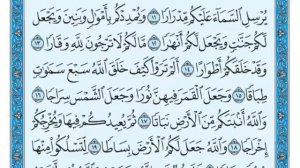 يُرْسِلِ السَّمَاءَ عَلَيْكُم مِّدْرَارًا ١١ وَيُمْدِدْكُم بِأَمْوَالٍ وَبَنِينَ وَيَجْعَل
لَّكُمْ جَنَّاتٍ وَيَجْعَل لَّكُمْ أَنْهَارًا ١٢ مَّا لَكُمْ لَا تَرْجُونَ لِلَّهِ وَقَارًا ١٣
وَقَدْ خَلَقَكُمْ أَطْوَارًا ١٤ أَلَمْ تَرَوْا كَيْفَ خَلَقَ اللَّهُ سَبْعَ سَمَاوَاتٍ
طِبَاقًا ١٥ وَجَعَلَ الْقَمَرَ فِيهِنَّ نُورًا وَجَعَلَ الشَّمْسَ سِرَاجًا ١٦
وَاللَّهُ أَنبَتَكُم مِّنَ الْأَرْضِ نَبَاتًا ١٧ ثُمَّ يُعِيدُكُمْ فِيهَا وَيُخْرِجُكُمْ
إِخْرَاجًا ١٨ وَاللَّهُ جَعَلَ لَكُمُ الْأَرْضَ بِسَاطًا ١٩ لِّتَسْلُكُوا مِنْهَا